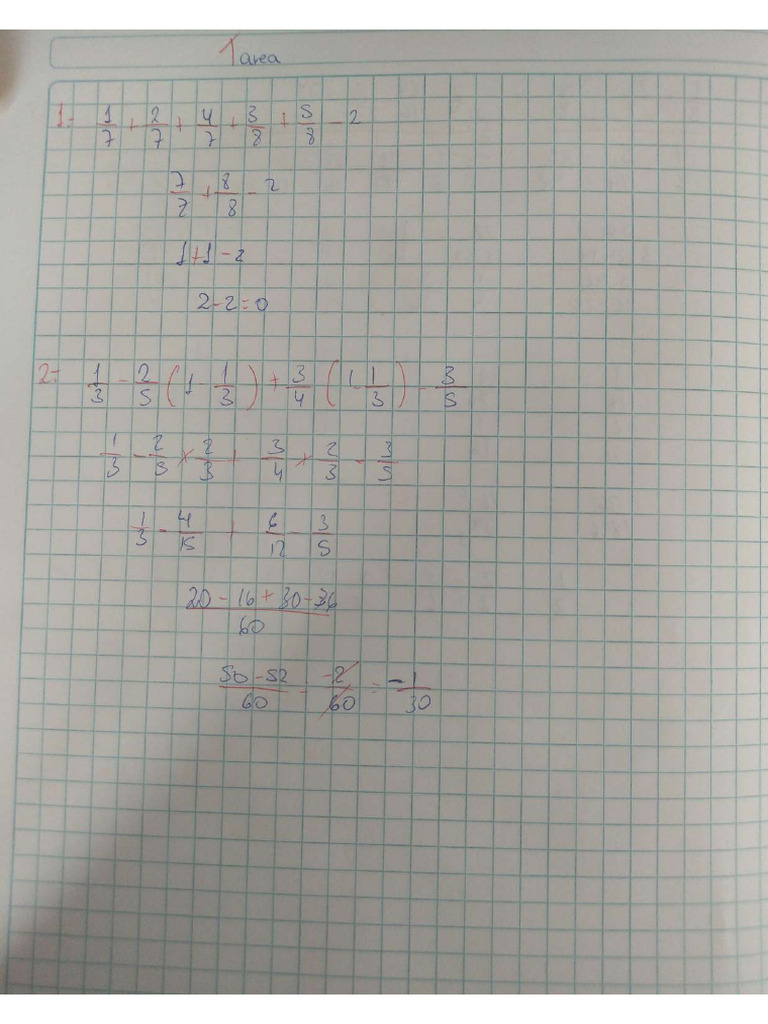 Tarea
1.- 1/7 + 2/7 + 4/7 + 3/8 + 5/8 - 2
7/7 + 8/8 - 2
1+1-2
2-2=0
2.- 1/3 - 2/5 (1 - 1/3) + 3/4 (1 - 1/3) - 3/5
1/3 - 2/5 × 2/3 + 3/4 × 2/3 - 3/5
1/3 - 4/15 + 6/12 - 3/5
20 - 16 + 30 - 36 / 60
50 - 52 / 60 - -2/60 = -1/30